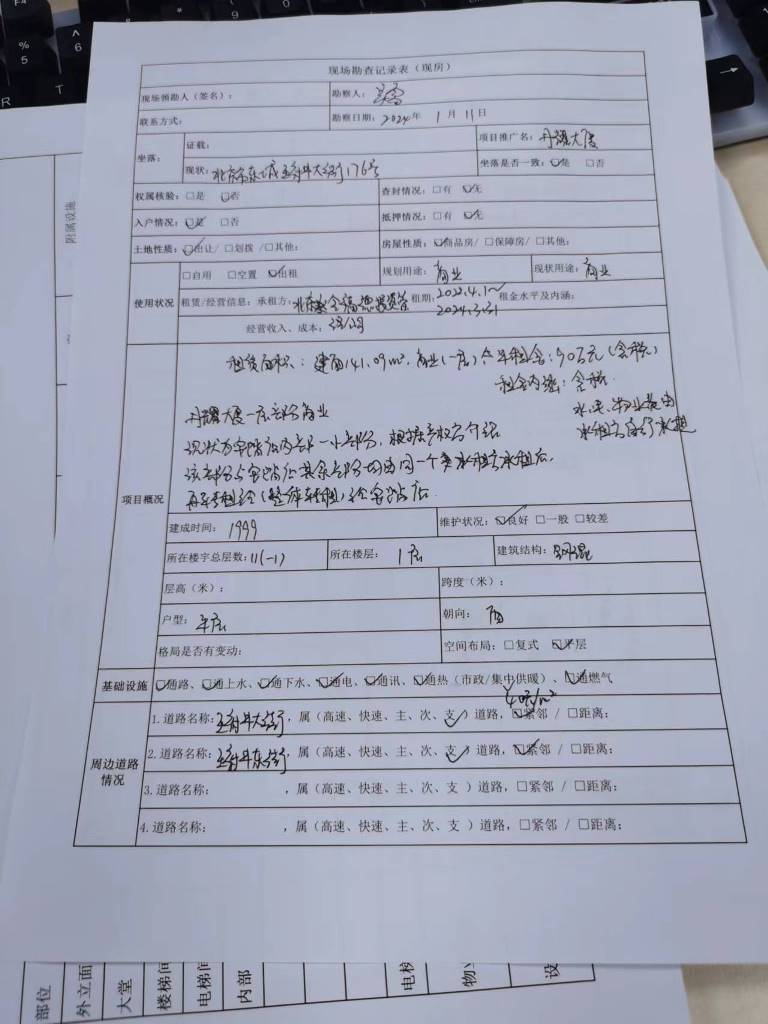 现场勘查记录表（现房）
现场领勘人（签名）： 勘察人：
联系方式： 勘察日期：2024年 1月 11日
坐落： 证载： 项目推广名：丹耀大厦
现状：北京市东城王府井大街176号 坐落是否一致：☑是 □否
权属核验：□是 ☑否 查封情况：□有 ☑无
入户情况：☑是 □否 抵押情况：□有 ☑无
土地性质：☑出让/ □划拨 /□其他： 房屋性质：☑商品房/ □保障房/ □其他：
使用状况 □自用 □空置 ☑出租 规划用途：商业 现状用途：商业
租赁/经营信息：承租方：北京 租期：2022.4.1~2024.3.31 租金水平及内涵：
经营收入、成本：
项目概况
租赁面积：建面141.09m²，商业（一层）年租金：90万元（含税）
租金内涵：含税
水、电、物业费由
承租方自行承担
丹耀大厦一层部分商业
现状为 店内部一小部分，根据产权方介绍
该部分与 其余部分均由同一个 承租方承租后
再转租给（整体转租）给 店
建成时间：1999 维护状况：☑良好 □一般 □较差
所在楼宇总层数：11(-1) 所在楼层：1层 建筑结构：钢混
层高（米）： 跨度（米）：
户型：平层 朝向：西
格局是否有变动： 空间布局：□复式 ☑平层
基础设施 ☑通路、☑通上水、☑通下水、☑通电、☑通讯、☑通热（市政/集中供暖）、☑通燃气
周边道路情况
1.道路名称：王府井大街，属（高速、快速、主、次、支✓）道路，☑紧邻 / □距离：
2.道路名称：王府井东街，属（高速、快速、主、次、支✓）道路，☑紧邻 / □距离：
3.道路名称： ，属（高速、快速、主、次、支 ）道路，□紧邻 / □距离：
4.道路名称： ，属（高速、快速、主、次、支 ）道路，□紧邻 / □距离：
附属设施
部位
外立面
大堂
楼梯间
电梯间
内部